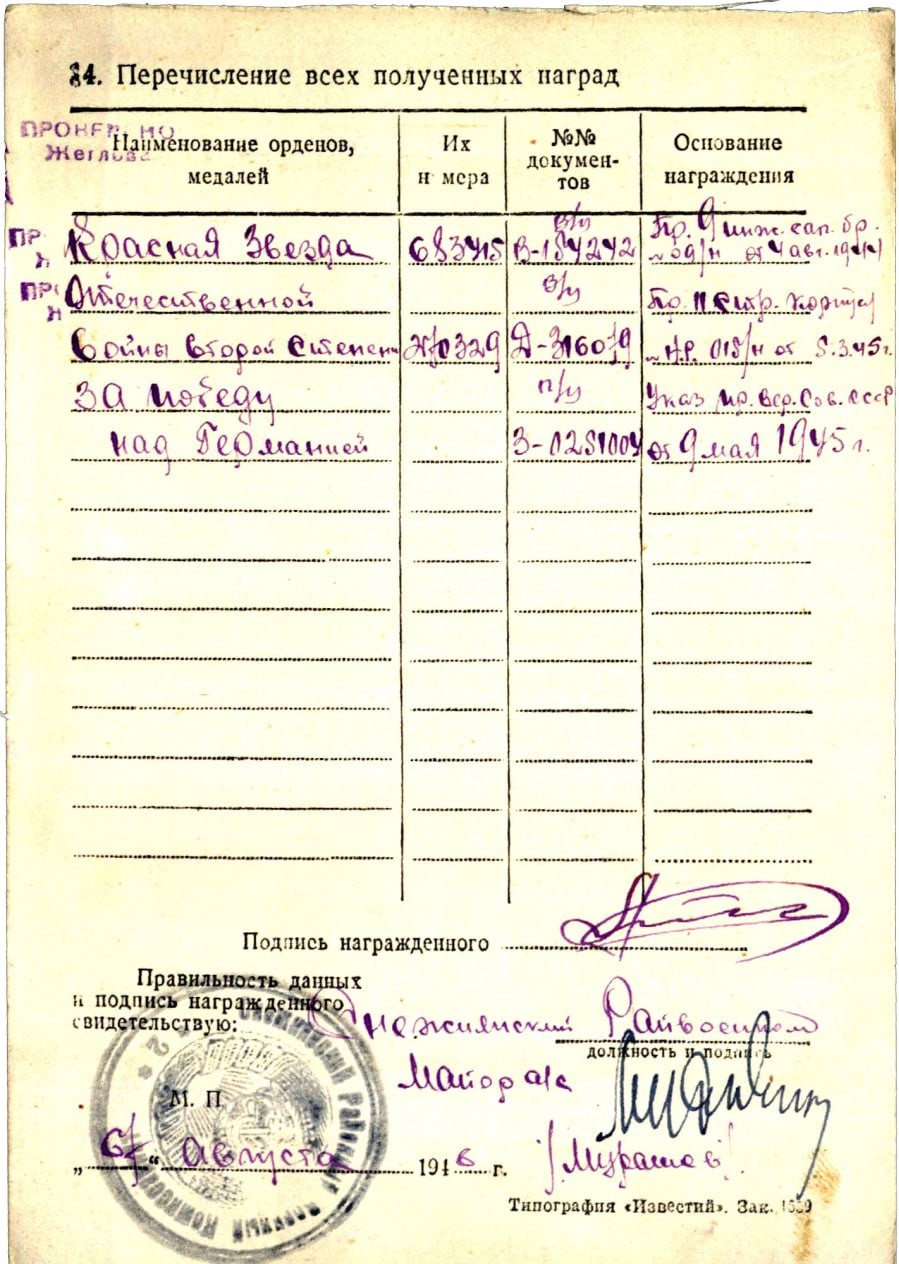 24. Перечисление всех полученных наград
Жеглова
Наименование орденов, медалей
Их номера
№№ документов
Основание награждения
Красная Звезда 683415 В-184242 Пр. 9 инж. сап. бр.
от 4 авг. 1944
Отечественной
Войны второй степени от 5.3.45г.
За победу Указ Пр. Вер. Сов. СССР
над Германией от 9 мая 1945 г.
Подпись награжденного
Правильность данных
и подпись награжденного
свидетельствую:
Райвоенком
должность и подпись
Майор а/с
М. П.
"6" Августа 1946 г. /Мурашов/
Типография «Известий». Зак.